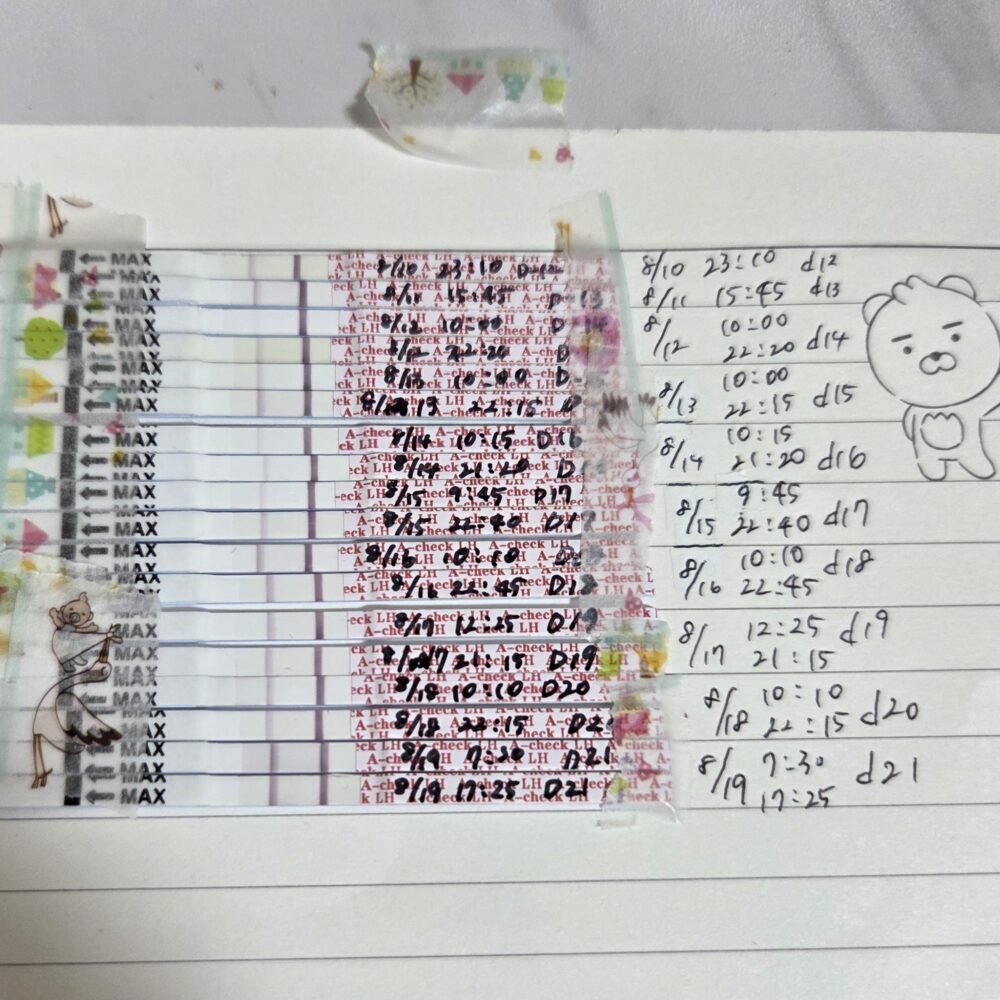 MAX A-check LH 8/10 23:10 D-12
MAX A-check LH 8/11 15:45 D-13
MAX A-check LH 8/12 10:00 D-14
MAX A-check LH 8/12 22:20 D
MAX A-check LH 8/13 10:00 D-
MAX A-check LH 8/13 22:15 D
MAX A-check LH 8/14 10:15 D16
MAX A-check LH 8/14 21:20 D
MAX A-check LH 8/15 9:45 D17
MAX A-check LH 8/15 22:40 D17
MAX A-check LH 8/16 10:10
MAX A-check LH 8/16 22:45 D18
MAX A-check LH 8/17 12:25 D19
MAX A-check LH 8/17 21:15 D19
MAX A-check LH 8/18 10:10 D20
MAX A-check LH 8/18 22:15 D2
MAX A-check LH 8/19 7:30 D21
MAX A-check LH 8/19 17:25 D21
8/10 23:10 d12
8/11 15:45 d13
8/12 10:00
22:20 d14
8/13 10:00
22:15 d15
8/14 10:15
21:20 d16
8/15 9:45
22:40 d17
8/16 10:10 d18
22:45
8/17 12:25 d19
21:15
8/18 10:10
22:15 d20
8/19 7:30 d21
17:25